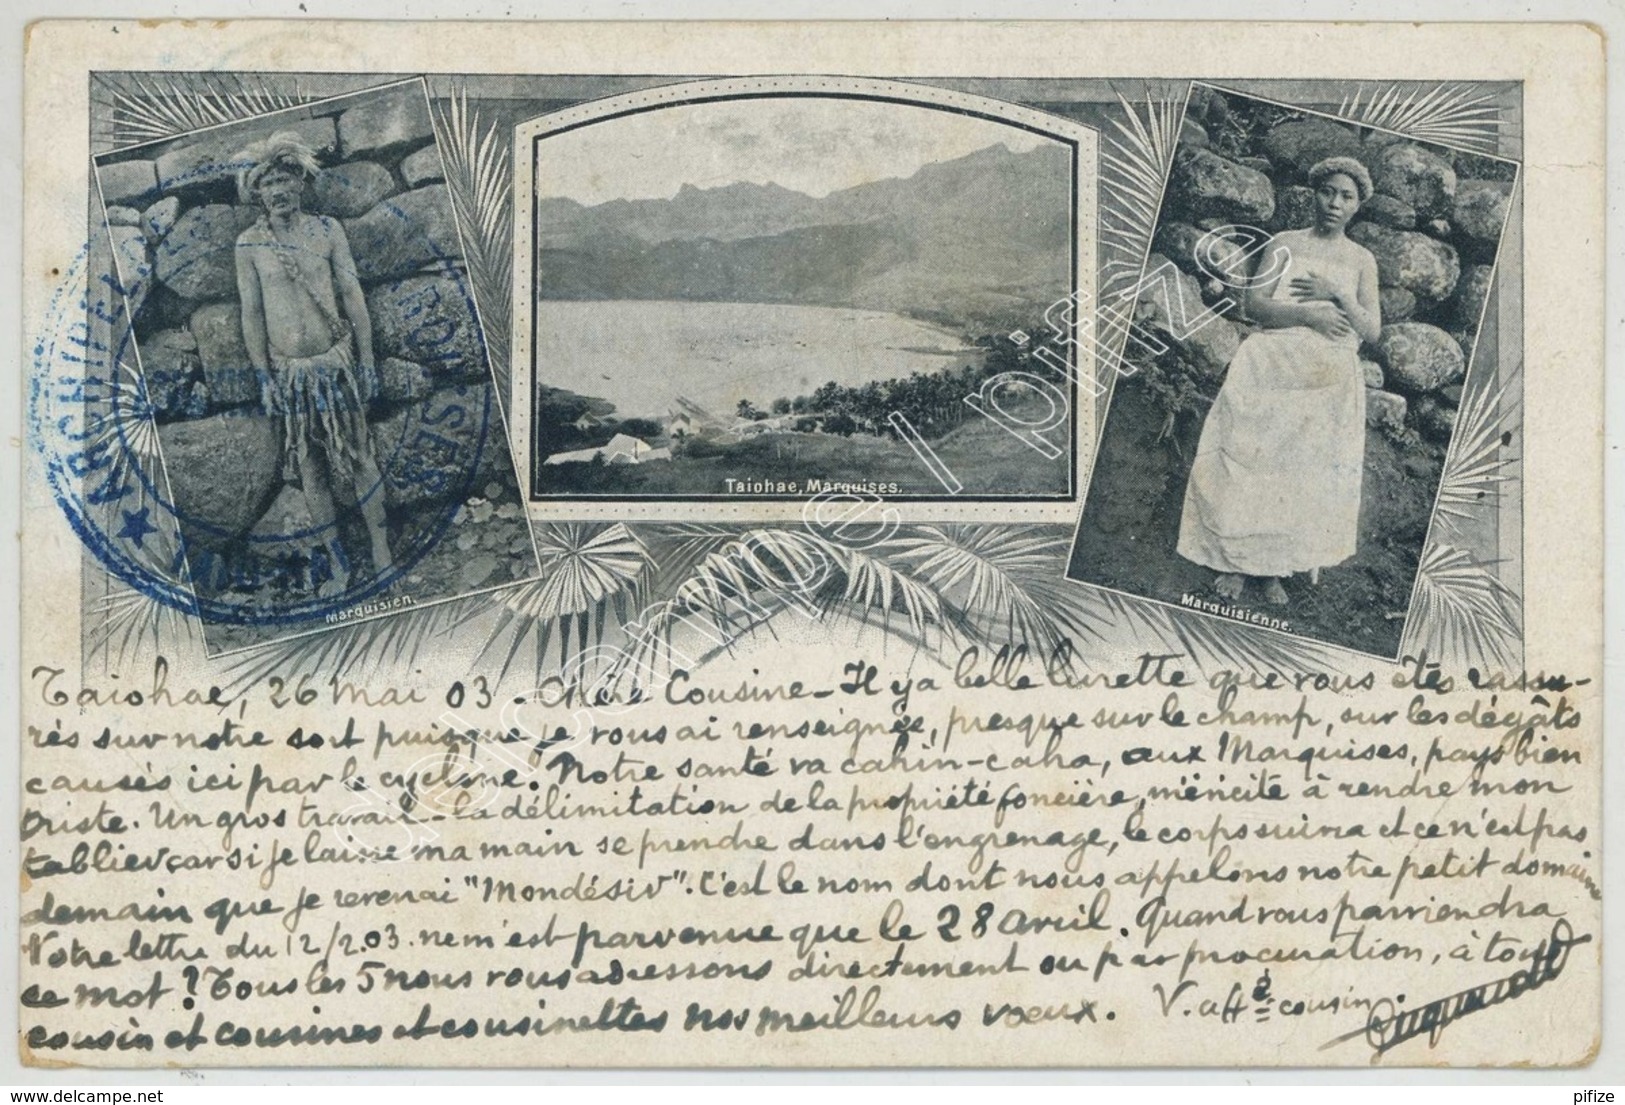 ARCHIPEL DES MARQUISES
Marquisien.
Taiohae, Marquises.
Marquisienne.
delcampe / pifize
Taiohae, 26 Mai 03 - Chère Cousine - Il y a belle lurette que vous êtes rassu-
rés sur notre sort puisque je vous ai renseignée, presque sur le champ, sur les dégâts
causés ici par le cyclone. Notre santé va cahin-caha, aux Marquises, pays bien
triste. Un gros travail - la délimitation de la propriété foncière, m'incite à rendre mon
tablier car si je laisse ma main se prendre dans l'engrenage, le corps suivra et ce n'est pas
demain que je reverrai "Mondésir". C'est le nom dont nous appelons notre petit domaine
Votre lettre du 12/2.03. ne m'est parvenue que le 28 avril. Quand vous parviendra
ce mot ? Tous les 5 nous vous adressons directement ou par procuration, à tous
cousin et cousines et cousinettes nos meilleurs voeux. V. aff é cousin.
delcampe.net
pifize